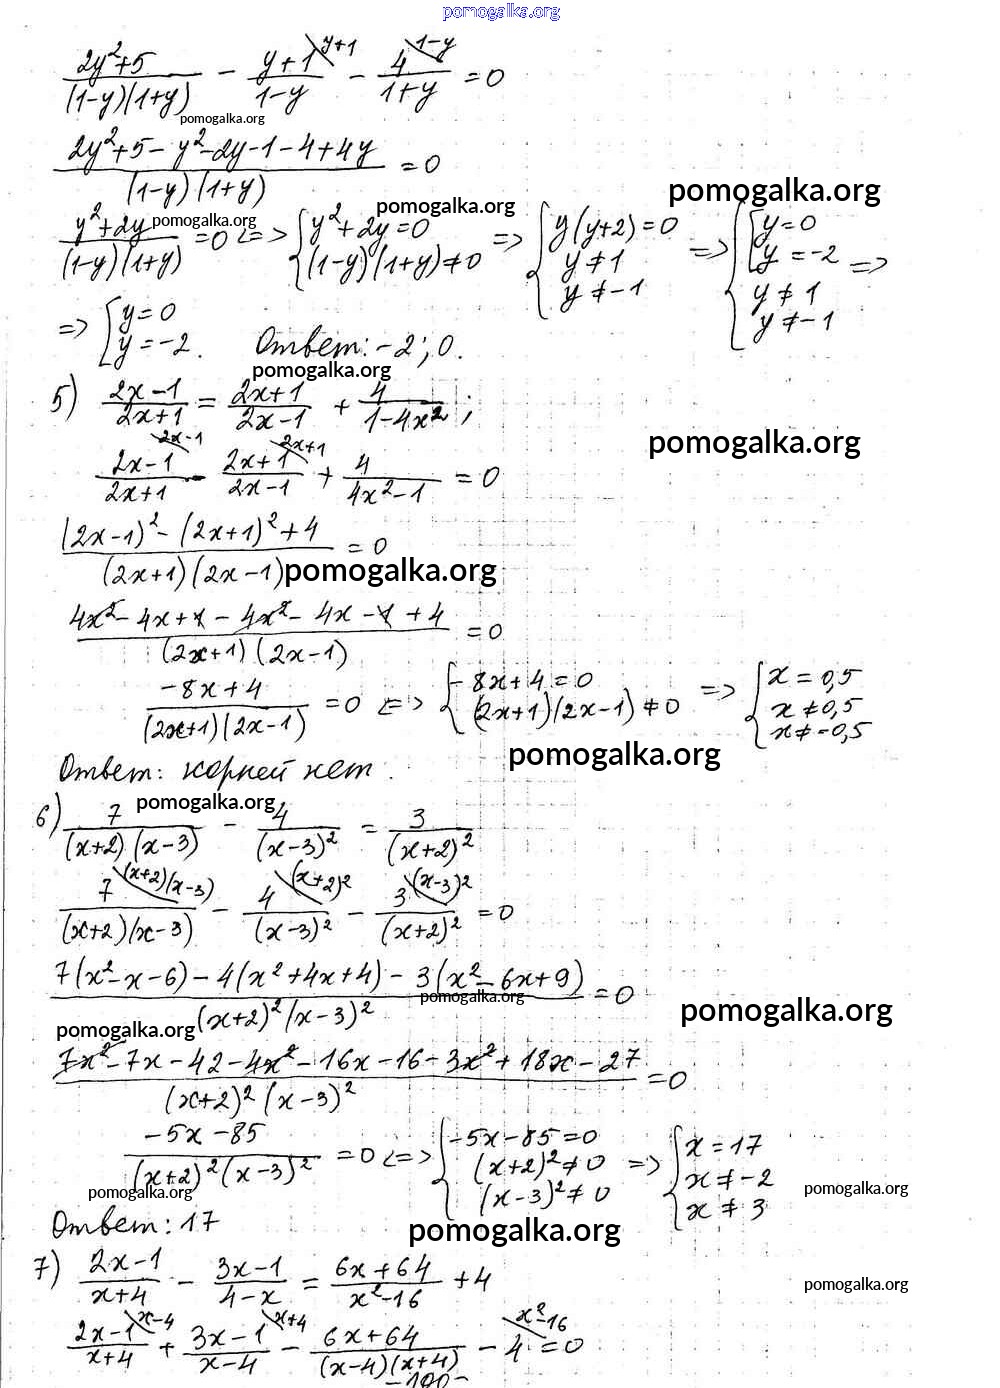 pomogalka.org
(2y²+5)/((1-y)(1+y)) - (y+1)/(1-y) \y+1 - 4/(1+y) \1-y = 0
pomogalka.org
(2y²+5-y²-2y-1-4+4y)/((1-y)(1+y)) = 0
pomogalka.org
(y²+2y)/((1-y)(1+y)) = 0 <=> { y²+2y=0; (1-y)(1+y)≠0 => { y(y+2)=0; y≠1; y≠-1 => { [ y=0; y=-2; y≠1; y≠-1 =>
pomogalka.org pomogalka.org
=> [ y=0; y=-2. Ответ: -2; 0.
pomogalka.org
5) (2x-1)/(2x+1) = (2x+1)/(2x-1) + 4/(1-4x²);
pomogalka.org
(2x-1)/(2x+1) \2x-1 - (2x+1)/(2x-1) \2x+1 + 4/(4x²-1) = 0
((2x-1)²-(2x+1)²+4)/((2x+1)(2x-1)) = 0
pomogalka.org
(4x²-4x+1-4x²-4x-1+4)/((2x+1)(2x-1)) = 0
(-8x+4)/((2x+1)(2x-1)) = 0 <=> { -8x+4=0; (2x+1)(2x-1)≠0 => { x=0,5; x≠0,5; x≠-0,5
pomogalka.org
Ответ: корней нет.
pomogalka.org
6) 7/((x+2)(x-3)) - 4/(x-3)² = 3/(x+2)²
7/((x+2)(x-3)) \(x+2)(x-3) - 4/(x-3)² \(x+2)² - 3/(x+2)² \(x-3)² = 0
(7(x²-x-6)-4(x²+4x+4)-3(x²-6x+9))/((x+2)²(x-3)²) = 0
pomogalka.org
pomogalka.org pomogalka.org
(7x²-7x-42-4x²-16x-16-3x²+18x-27)/((x+2)²(x-3)²) = 0
(-5x-85)/((x+2)²(x-3)²) = 0 <=> { -5x-85=0; (x+2)²≠0; (x-3)²≠0 => { x=17; x≠-2; x≠3
pomogalka.org pomogalka.org
Ответ: 17
pomogalka.org
7) (2x-1)/(x+4) - (3x-1)/(4-x) = (6x+64)/(x²-16) + 4
pomogalka.org
(2x-1)/(x+4) \x-4 + (3x-1)/(x-4) \x+4 - (6x+64)/((x-4)(x+4)) - 4 \x²-16 = 0
-190-